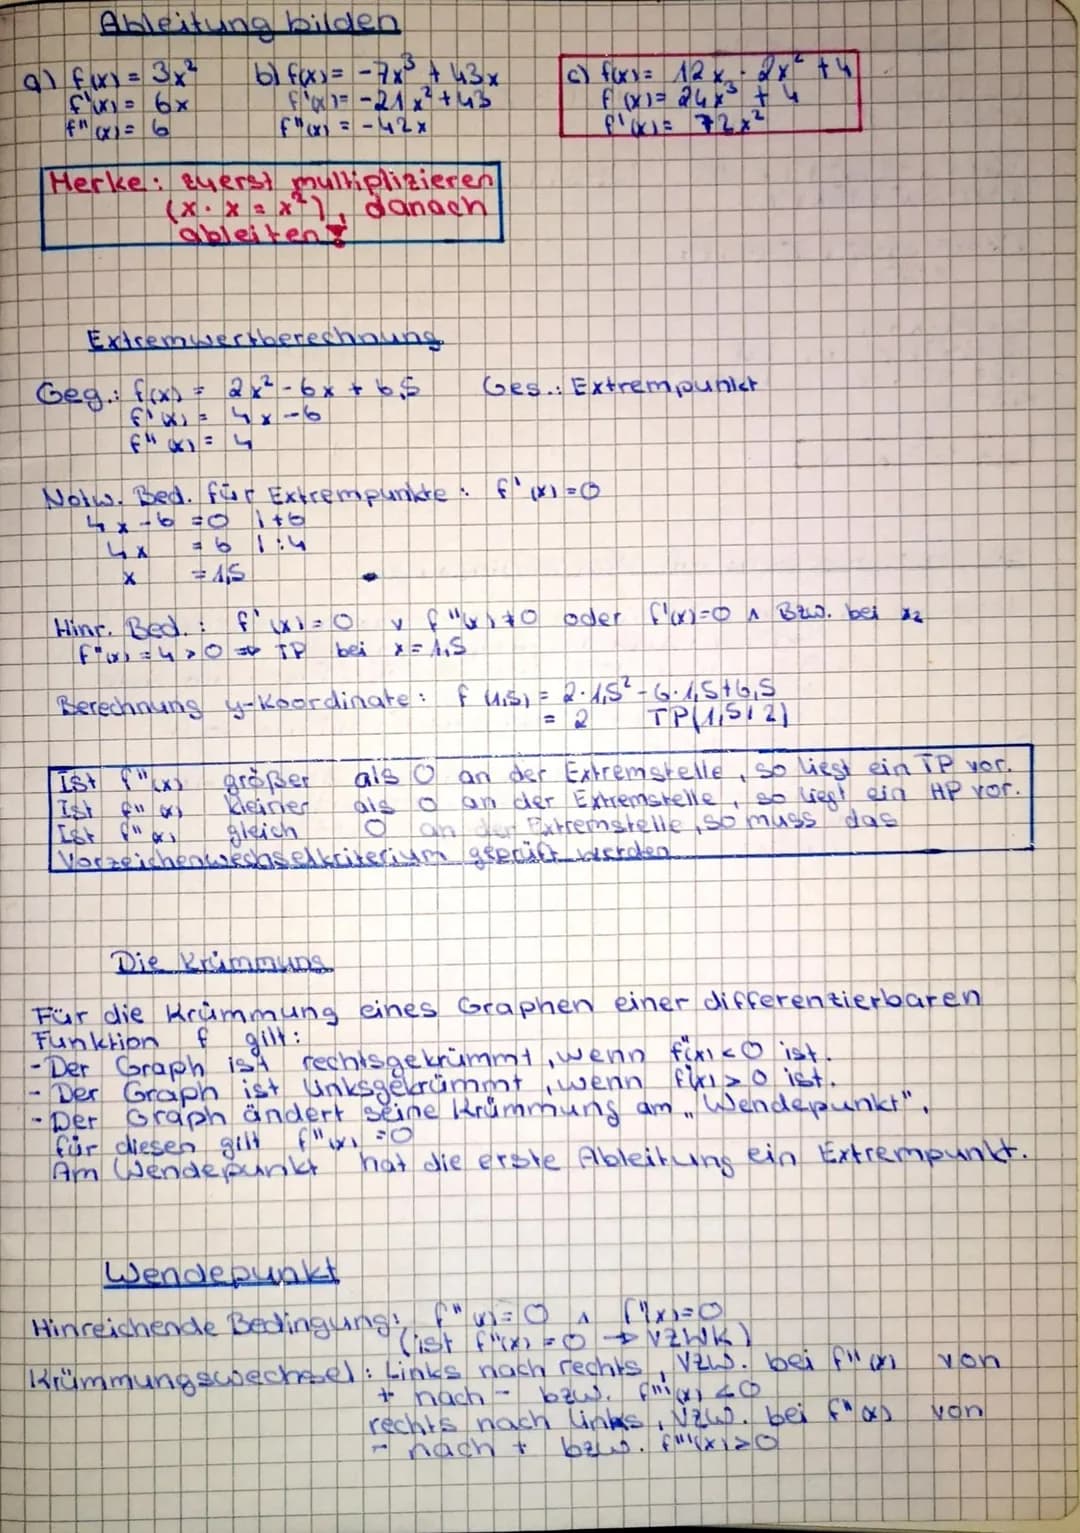 Ableitung bilden
a) f(x) = 3x²
f'(x) = 6x
f''(x) = 6
b) f(x) = -7x³ + 43x
f'(x) = -21x² + 43
f''(x) = -42x
c) f(x) = 12x · 2x² + 4
f(x) = 24x³ + 4
f'(x) = 72x²
Merke: zuerst multiplizieren
(x · x = x²), danach
ableiten!
Extremwertberechnung
Geg.: f(x) = 2x² - 6x + 6,5 Ges.: Extrempunkt
f'(x) = 4x - 6
f''(x) = 4
Notw. Bed. für Extrempunkte: f'(x) = 0
4x - 6 = 0 | +6
4x = 6 | :4
x = 1,5
Hinr. Bed.: f'(x) = 0 v f''(x) ≠ 0 oder f'(x) = 0 ∧ Bzw. bei x₂
f''(x) = 4 > 0 => TP bei x = 1,5
Berechnung y-Koordinate: f(1,5) = 2·1,5² - 6·1,5 + 6,5
= 2 TP(1,5 | 2)
Ist f''(x) größer als 0 an der Extremstelle, so liegt ein TP vor.
Ist f''(x) kleiner als 0 an der Extremstelle, so liegt ein HP vor.
Ist f''(x) gleich 0 an der Extremstelle, so muss das
Vorzeichenwechselkriterium geprüft werden
Die Krümmung
Für die Krümmung eines Graphen einer differentierbaren
Funktion f gilt:
- Der Graph ist rechtsgekrümmt, wenn f''(x) < 0 ist.
- Der Graph ist linksgekrümmt, wenn f''(x) > 0 ist.
- Der Graph ändert seine Krümmung am „Wendepunkt",
für diesen gilt f''(x) = 0
Am Wendepunkt hat die erste Ableitung ein Extrempunkt.
Wendepunkt
Hinreichende Bedingung: f''(x) = 0 ∧ f''(x) = 0
(ist f''(x) = 0 → VZWK)
Krümmungswechsel: Links nach rechts, VZW. bei f''(x) von
+ nach - bzw. f'''(x) < 0
rechts nach links, VZW. bei f''(x) von
- nach + bzw. f'''(x) > 0